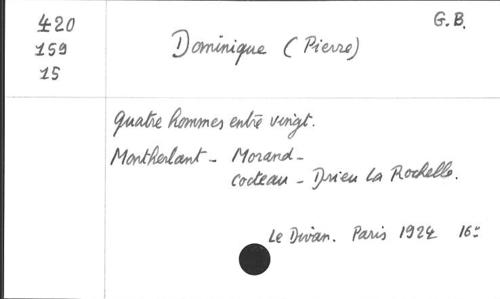 420
159
15
G.B.
Dominique (Pierre)
Quatre hommes entre vingt.
Montherlant - Morand -
Cocteau - Drieu La Rochelle.
Le Divan. Paris 1924 16º